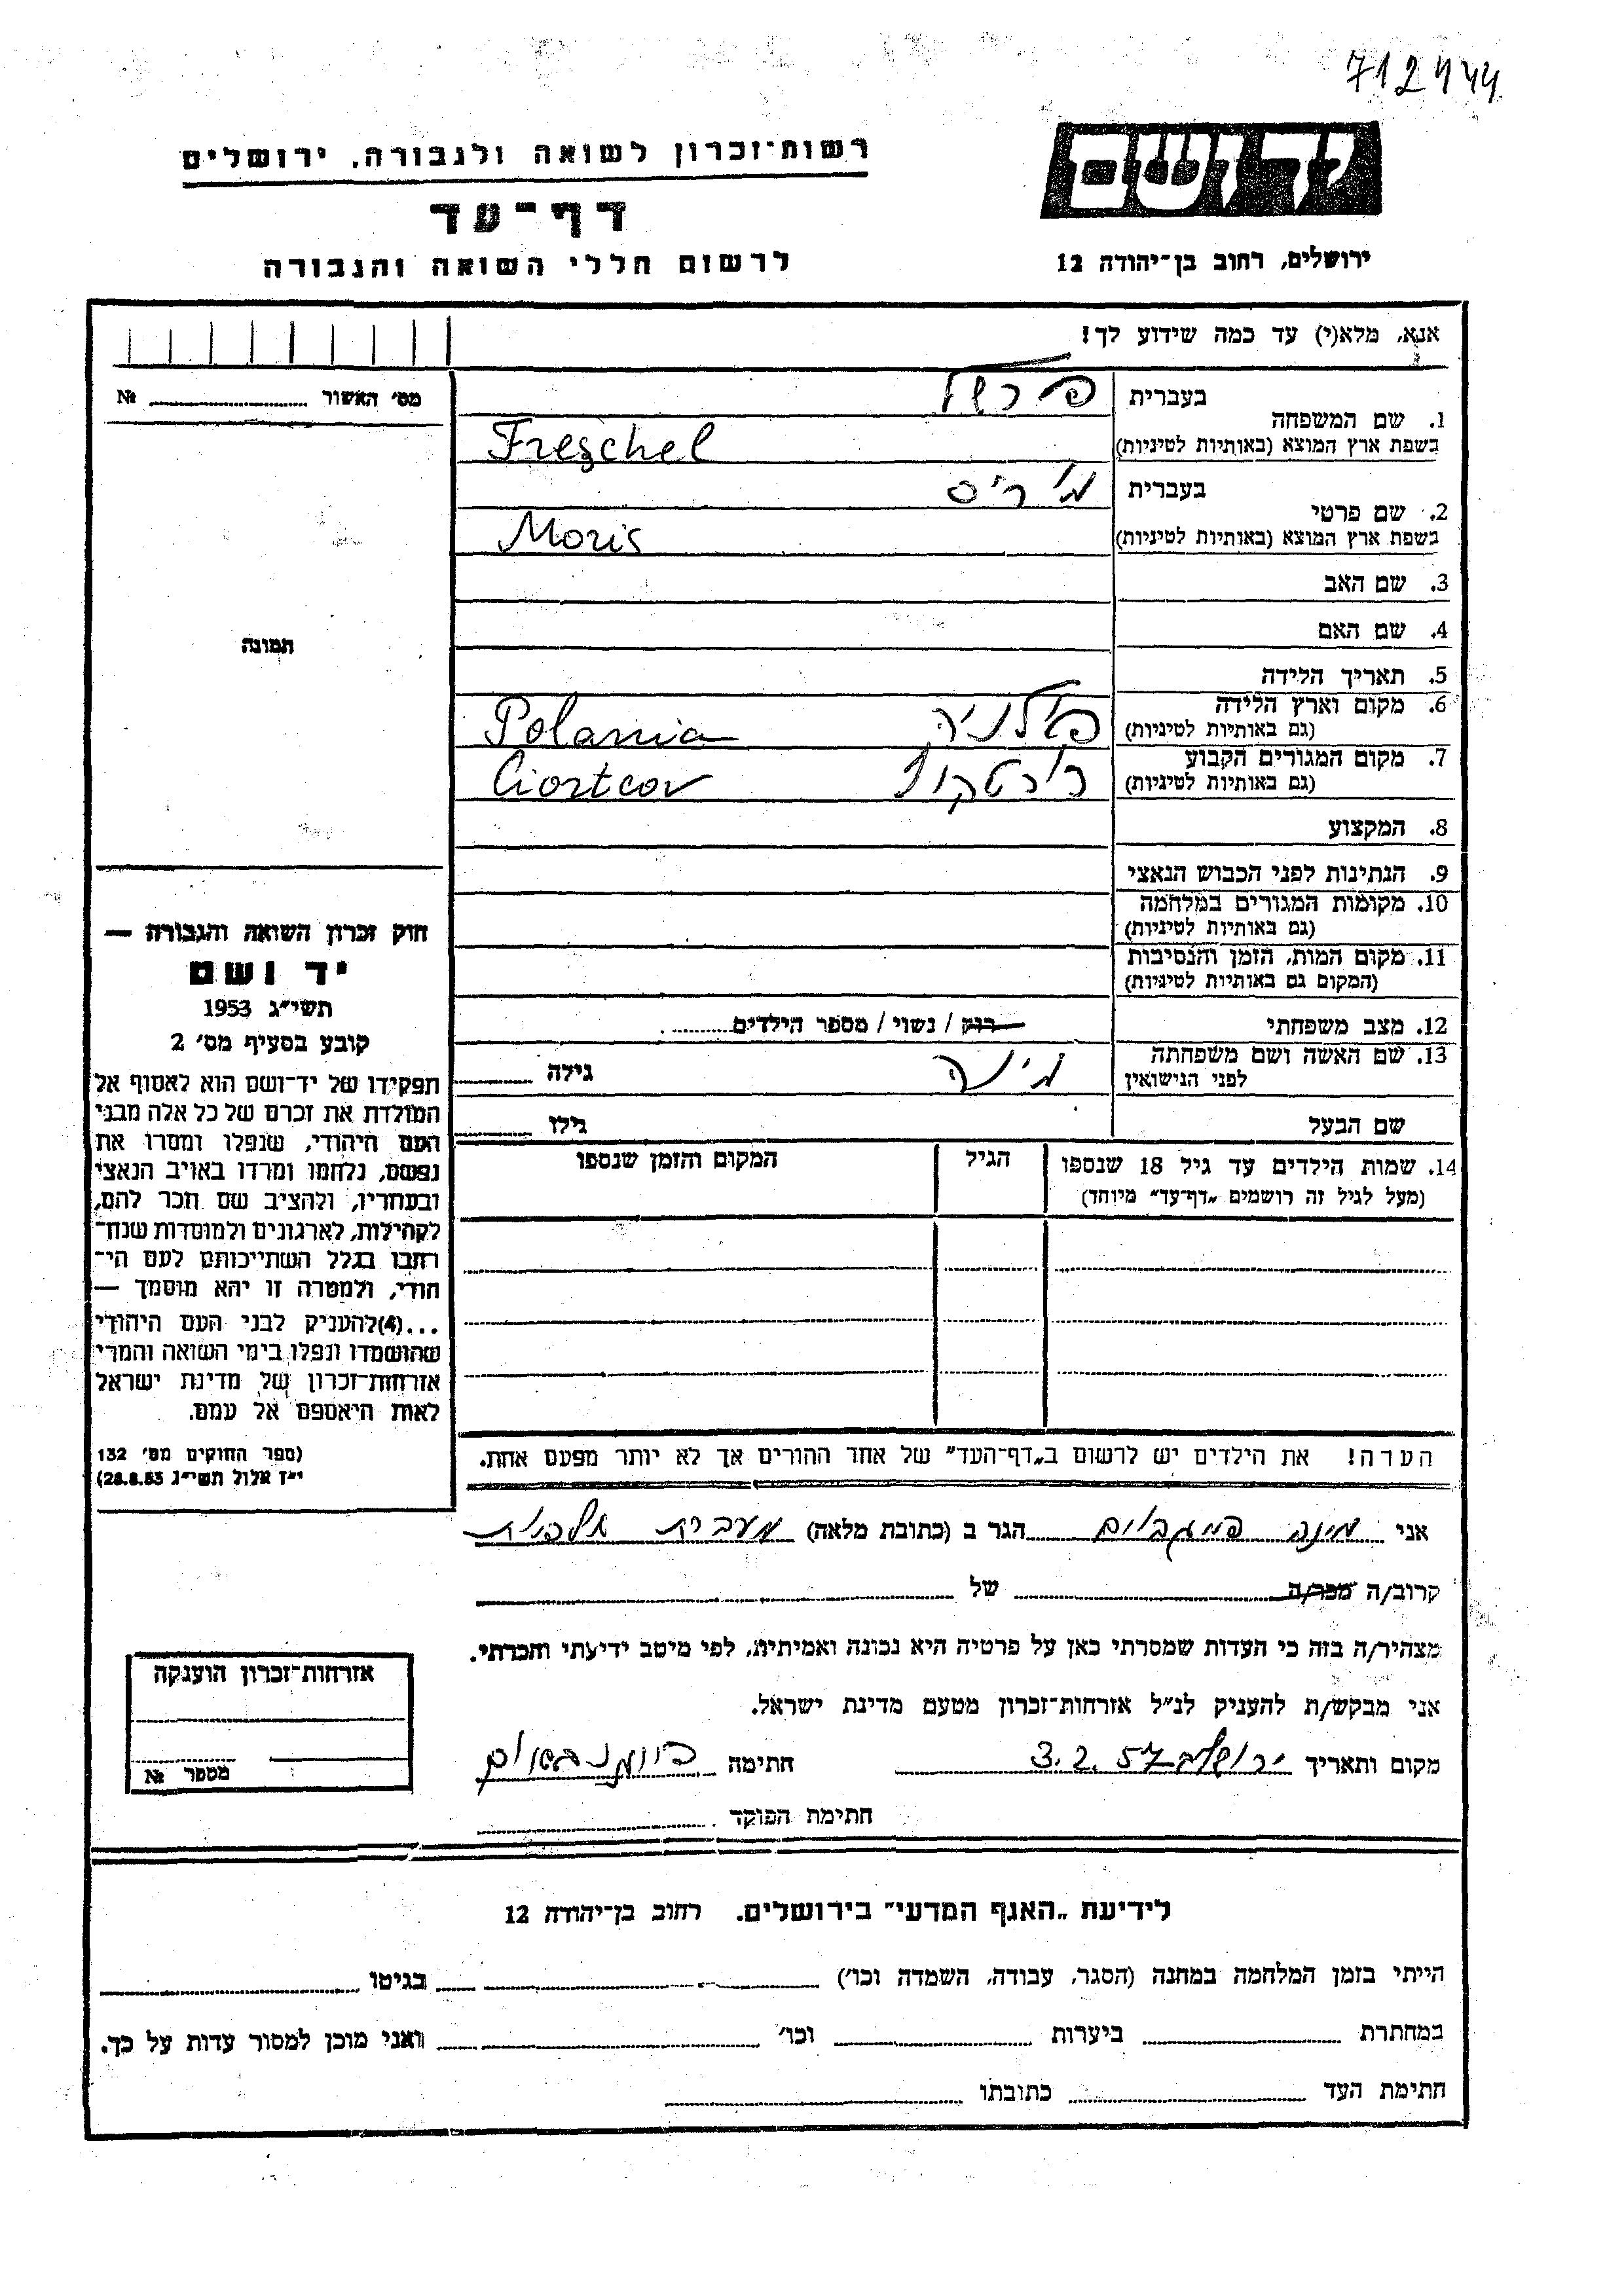 712444
רשות־זכרון לשואה ולגבורה, ירושלים
יד ושם
דף־עד
לרשום חללי השואה והגבורה
ירושלים, רחוב בן־יהודה 12
אנא, מלא(י) עד כמה שידוע לך!
מס׳ האשור № 
1. שם המשפחה
בעברית פרשל
בשפת ארץ המוצא (באותיות לטיניות) Freschel
2. שם פרטי
בעברית מוריס
בשפת ארץ המוצא (באותיות לטיניות) Moris
3. שם האב
4. שם האם
תמונה
5. תאריך הלידה
6. מקום וארץ הלידה
(גם באותיות לטיניות) פולניה Polania
7. מקום המגורים הקבוע
(גם באותיות לטיניות) Ciortcov
8. המקצוע
9. הנתינות לפני הכבוש הנאצי
10. מקומות המגורים במלחמה
(גם באותיות לטיניות)
11. מקום המות, הזמן והנסיבות
(המקום גם באותיות לטיניות)
12. מצב משפחתי רווק / נשוי / מספר הילדים
13. שם האשה ושם משפחתה
לפני הנישואין מינה גילה
שם הבעל גילו
14. שמות הילדים עד גיל 18 שנספו
(מעל לגיל זה רושמים „דף־עד״ מיוחד)
הגיל
המקום והזמן שנספו
הערה! את הילדים יש לרשום ב„דף־העד״ של אחד ההורים אך לא יותר מפעם אחת.
חוק זכרון השואה והגבורה —
יד ושם
תשי״ג 1953
קובע בסעיף מס׳ 2
תפקידו של יד־ושם הוא לאסוף אל
המולדת את זכרם של כל אלה מבני
העם היהודי, שנפלו ומסרו את
נפשם, נלחמו ומרדו באויב הנאצי
ובעוזריו, ולהציב שם וזכר להם,
לקהילות, לארגונים ולמוסדות שנח־
רבו בגלל השתייכותם לעם הי־
הודי, ולמטרה זו יהא מוסמך —
...(4) להעניק לבני העם היהודי
שהושמדו ונפלו בימי השואה והמרי
אזרחות־זכרון של מדינת ישראל
לאות היאספם אל עמם.
(ספר החוקים מס׳ 132
י״ז אלול תשי״ג 28.8.53)
אני מינה הגר ב (כתובת מלאה) מעברת
קרוב/ה מכר/ה של
מצהיר/ה בזה כי העדות שמסרתי כאן על פרטיה היא נכונה ואמיתית, לפי מיטב ידיעתי והכרתי.
אני מבקש/ת להעניק לנ״ל אזרחות־זכרון מטעם מדינת ישראל.
מקום ותאריך ירושלים 3.2.57 חתימה
חתימת הפוקד
אזרחות־זכרון הוענקה
מספר №
לידיעת „האגף המדעי״ בירושלים, רחוב בן־יהודה 12
הייתי בזמן המלחמה במחנה (הסגר, עבודה, השמדה וכו׳) בגיטו
במחתרת ביערות וכו׳ ואני מוכן למסור עדות על כך.
חתימת העד כתובתו